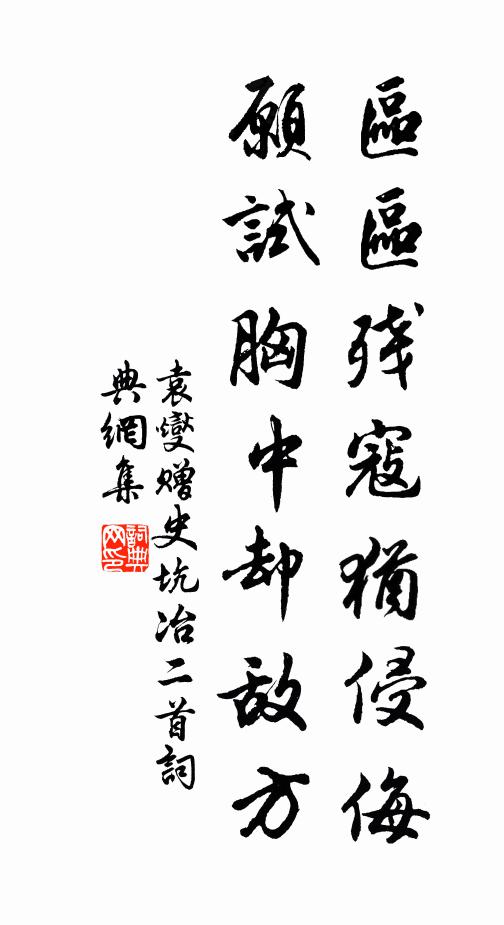 區區殘寇猶侵侮
願試胸中却敵方
袁燮贈史坑冶二首詞
典網集
詞典
网印